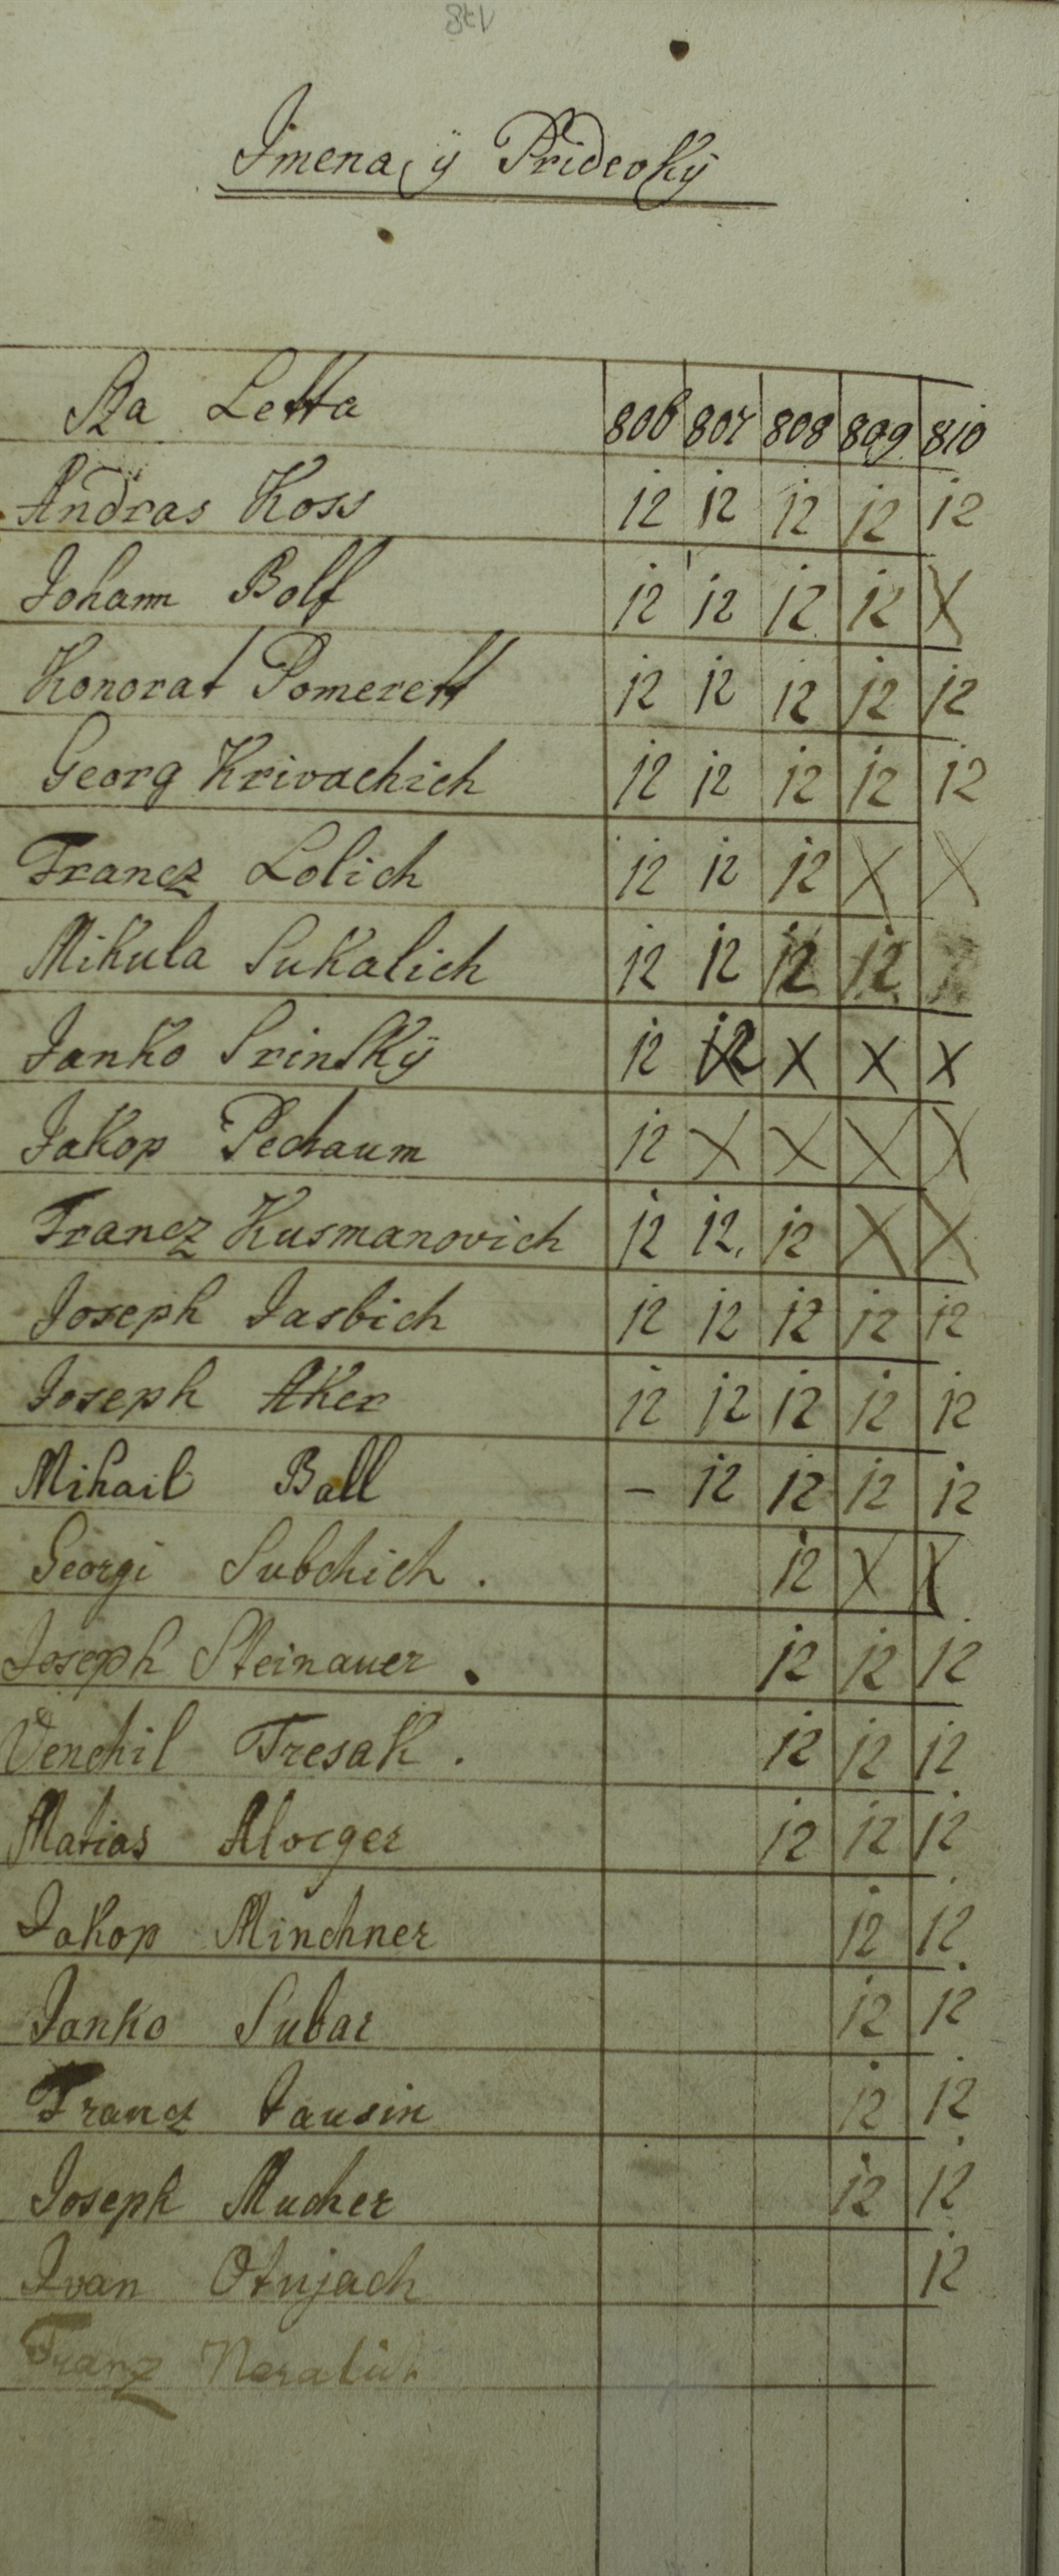 Jmena, ÿ Pridevkÿ
Za Letta 806 807 808 809 810
Andras Koss 12 12 12 12 12
Johann Bolf 12 12 12 12 X
Honorat Pomerett 12 12 12 12 12
Georg Krivachich 12 12 12 12 12
Francz Lolich 12 12 12 X X
Mikula Sukalich 12 12 12 12
Janko Srinskÿ 12 12 X X X
Jakop Pechaum 12 X X X X
Francz Kusmanovich 12 12. 12 X X
Joseph Jasbich 12 12 12 12 12
Joseph Aker 12 12 12 12 12
Mihail Ball – 12 12 12 12
Georgi Subchich. 12 X X
Joseph Steinauer. 12 12 12
Venchil Tresak. 12 12 12
Matias 12 12 12
Jakop Minchner 12 12
Janko Subar 12 12
Francz Jausin 12 12
Joseph Mucher 12 12
Ivan Otujach 12
Franz